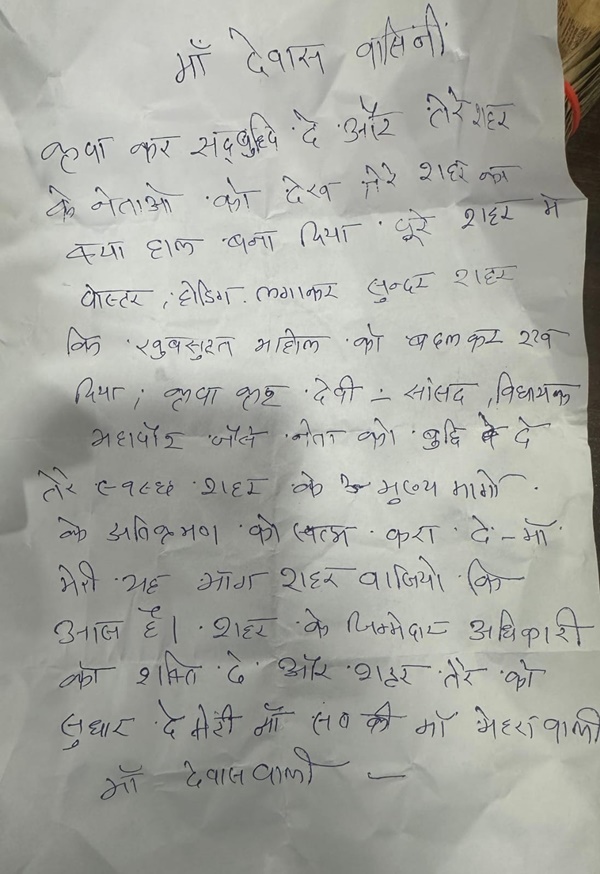 माँ देवास वासिनी
कृपा कर सद्बुद्धि दे और तेरे शहर
के नेताओ को देख तेरे शहर का
क्या हाल बना दिया पूरे शहर मे
पोस्टर, होर्डिग लगाकर सुन्दर शहर
कि खुबसुरत माहौल को बदलकर रख
दिया, कृपा कर देवी - सांसद, विधायक
महापौर जैसे नेता को बुद्धि दे
तेरे स्वच्छ शहर के मुख्य मार्गो
के अतिक्रमण को खत्म करा दे - माँ
मेरी यह मांग शहर वासियो कि
आज है। शहर के जिम्मेदार अधिकारी
को शक्ति दे और शहर तेरे को
सुधार दे मेरी माँ सब की माँ मेहरावाली
माँ देवासवाली -